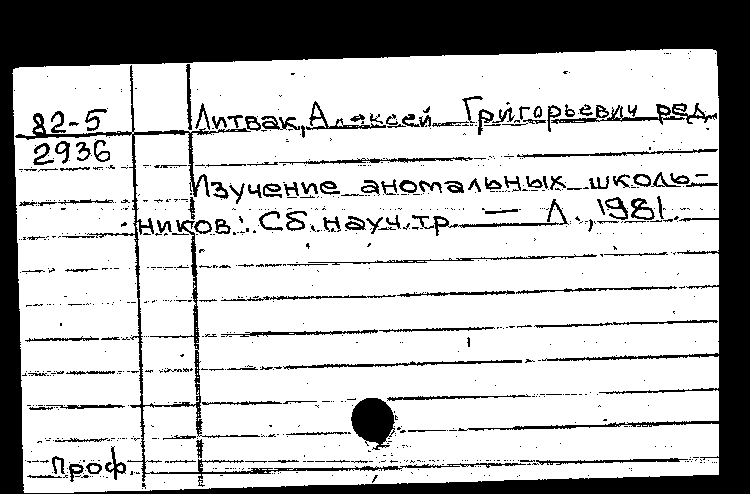 82-5
2936
Литвак, Алексей Григорьевич ред.
Изучение аномальных школь-
ников: Сб. науч. тр. — Л., 1981.
Проф.